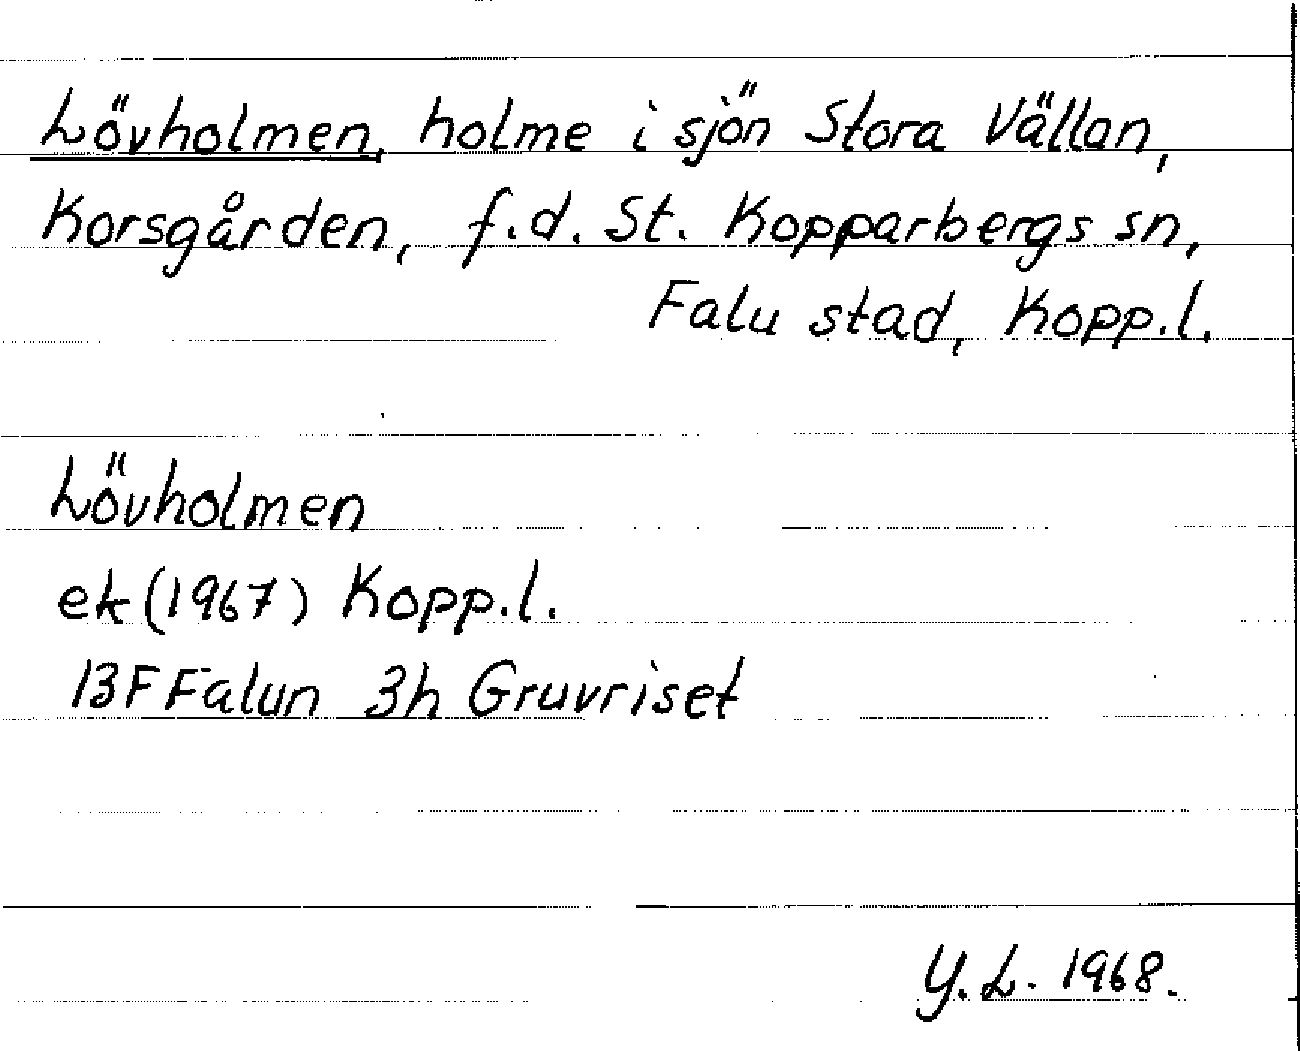 Lövholmen, holme i sjön Stora Vällan,
Korsgården, f.d. St. Kopparbergs sn,
Falu stad, Kopp.l.
Lövholmen
ek (1967) Kopp.l.
13F Falun 3h Gruvriset
Y.L. 1968.